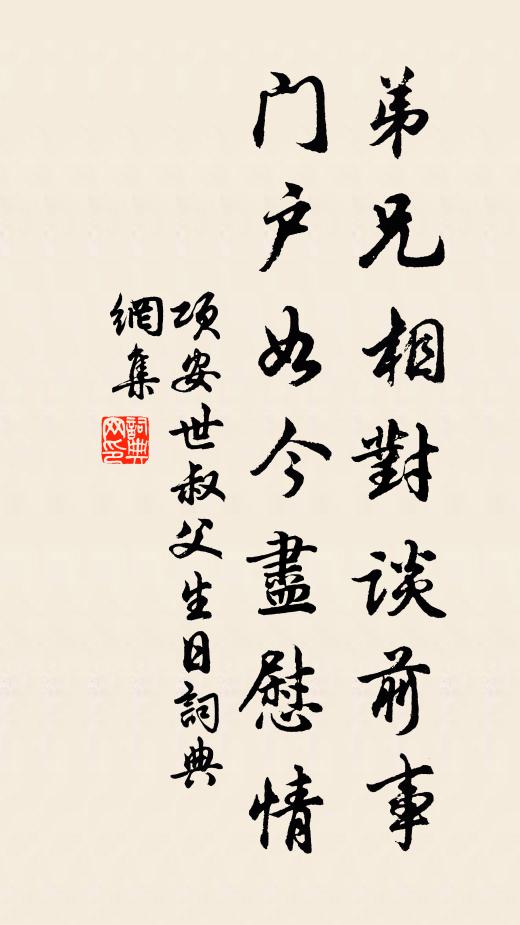 弟兄相對談前事
门户如今盡慰情
項安世叔父生日詞典
網集
詞典
网印